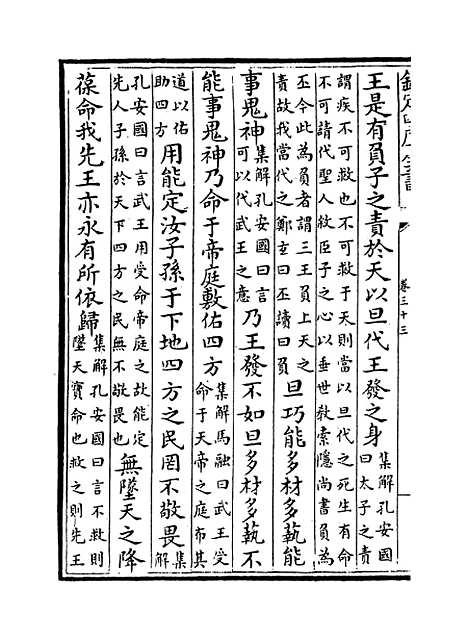 欽定四庫全書
卷三十三
王是有負子之責於天以旦代王發之身
集解孔安國
曰太子之責
謂疾不可救也不可救于天則當以旦代之死生有命
不可請代聖人叙臣子之心以垂世教索隱尚書負為
丕今此為負者謂三王負上天之
責故我當代之鄭玄曰丕讀曰負
旦巧能多材多蓺能
事鬼神
集解孔安國曰言
可以代武王之意
乃王發不如旦多材多蓺不
能事鬼神乃命于帝庭敷佑四方
集解馬融曰武王受
命于天帝之庭布其
道以佑
助四方
用能定汝子孫于下地四方之民罔不敬畏
集
解
孔安國曰言武王用受命帝庭之故能定
先人子孫於天下四方之民無不敬畏也
無墜天之降
葆命我先王亦永有所依歸
集解孔安國曰言不救則
墜天寶命也救之則先王